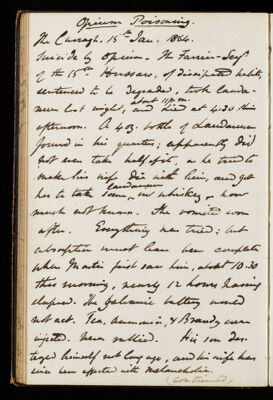 Opium Poisoning.
The Curragh, 15th Jan. 1864.
Suicide by Opium. The Farrier-Serjt
of the 15th Hussars, of dissipated habits,
sentenced to be degraded, took lauda-
about 11 p.m.
num last night, and died at 4.30 this
afternoon. A 4oz. bottle of Laudanum
found in his quarters; apparently did
not even take half of it, as he tried to
make his wife die with him, and got
laudanum
her to take some, in whiskey, how
much not known. She vomited soon
after. Everything was tried; but
absorption must have been complete
when Martin first saw him, about 10.30
this morning, nearly 12 hours having
elapsed. The galvanic battery would
not act. Tea, ammonia, & Brandy were
injected. Never rallied. His son des-
troyed himself not long ago, and his wife has
since been affected with melancholia.
(continued)